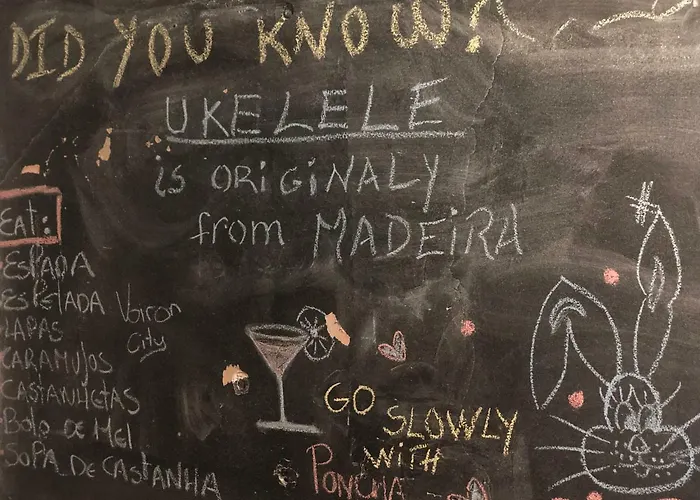 DID YOU KNOW?
UKELELE
is ORiGiNALY
from MADEiRA
EAT:
ESPADA
ESPETADA
LAPAS
CARAMUJOS
CASTANHETAS
Bolo DE MEl
SOPA DE CASTANHA
Voiron
City
GO SLOWLY
WiTH
PONCHA